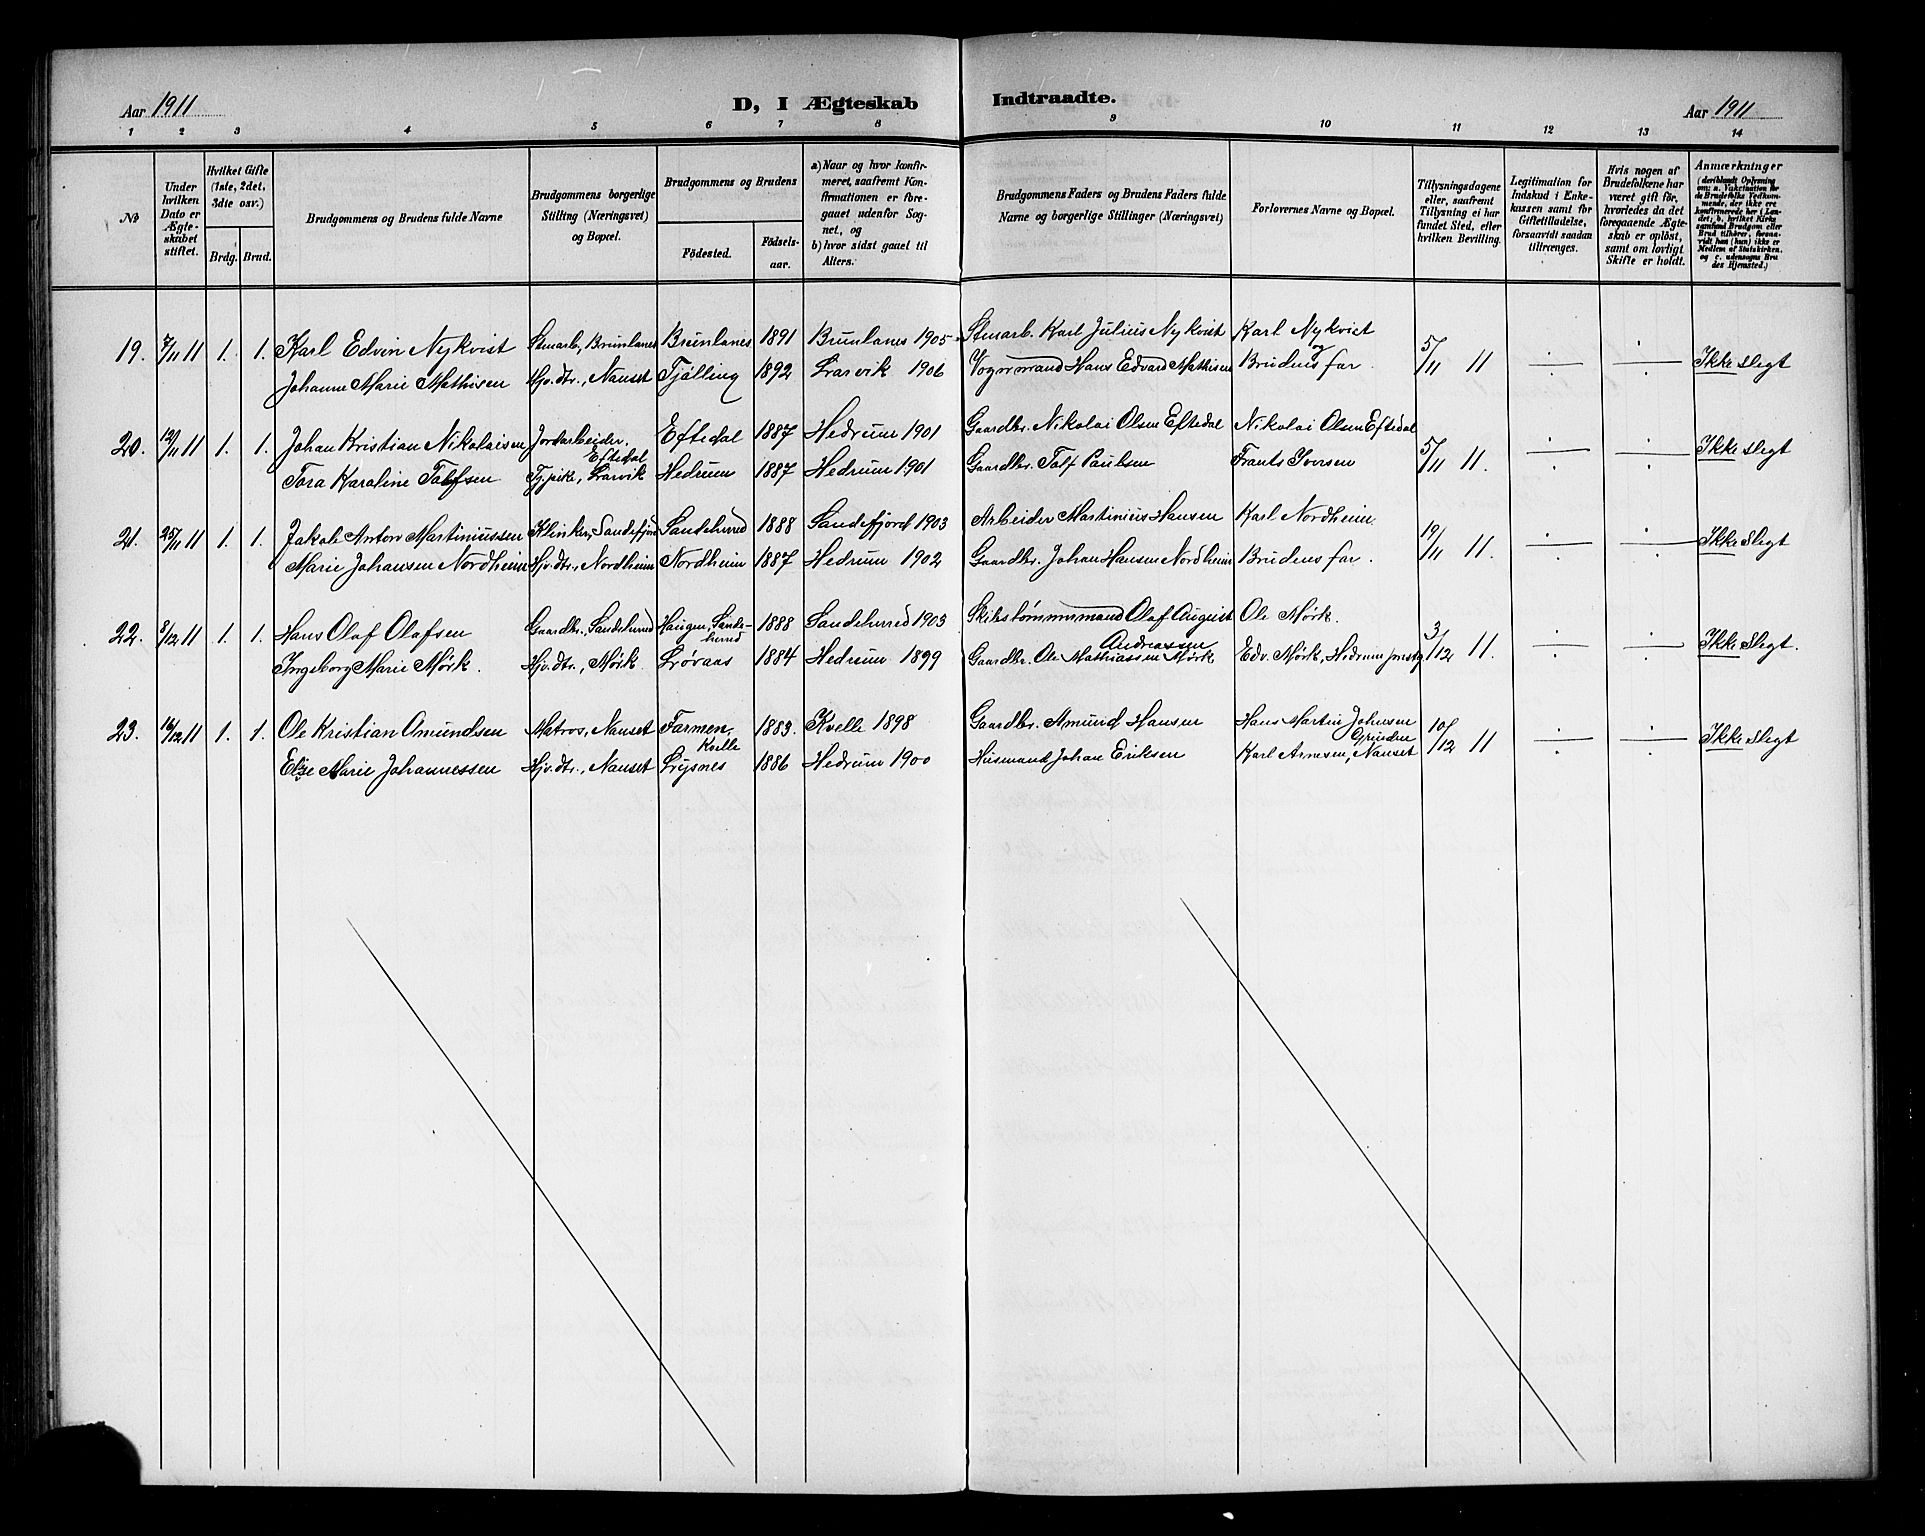 Aar 1911
D, I Ægteskab Indtraadte.
Aar 1911
1 2 3 4 5 6 7 8 9 10 11 12 13 14
No
Under hvilken Dato er Ægteskabet stiftet.
Hvilket Gifte (1ste, 2det, 3die osv.)
Brdg. Brud.
Brudgommens og Brudens fulde Navne
Brudgommens borgerlige Stilling (Næringsvei) og Bopæl.
Brudgommens og Brudens
Födested.
Födselsaar.
a) Naar og hvor konfirmeret, saafremt Konfirmationen er foregaaet udenfor Sognet, og
b) hvor sidst gaaet til Alters.
Brudgommens Faders og Brudens Faders fulde Navne og borgerlige Stillinger (Næringsvei)
Forlovernes Navne og Bopæl.
Tillysningsdagene eller, saafremt Tillysning ei har fundet Sted, efter hvilken Bevilling.
Legitimation for Indskud i Enkekassen samt for Giftetilladelse, forsaavidt saadan tiltrænges.
Hvis nogen af Brudefolkene har været gift før, hvorledes da det foregaaende Ægteskab er opløst, samt om lovligt Skifte er holdt.
Anmærkninger (deriblandt Oplysning om: a. Vaccination for de Brudefolks Vedkommende, der ikke ere konfirmerede her i Landet; b. hvilket Kirkesamfund Brudgom eller Brud tilhører, forsaavidt han (hun) ikke er Medlem af Statskirken, og c. udensogns Brudes Hjemsted.)
19. 7/11 11 1. 1. Karl Edvin Nykvist Stenarb., Brunlanes Brunlanes 1891 Brunlanes 1905 Stenarb. Karl Julius Nykvist Karl Nykvist og 5/11 11 Ikke slegt
Johanne Marie Mathisen Hjv. dtr., Nanset Tjølling 1892 Larvik 1906 Vognmand Hans Edvard Mathisen Brudens far.
20. 12/11 11 1. 1. Johan Kristian Nikolaisen Jordarbeider. Eftedal Eftedal 1887 Hedrum 1901 Gaardbr. Nikolai Olsen Eftedal Nikolai Olsen Eftedal 5/11 11. Ikke slegt
Tora Karoline Tolfsen Tj.pike, Larvik Hedrum 1887 Hedrum 1901 Gaardbr. Tolf Paulsen Frants Iversen
21. 25/11 11 1. 1. Jakob Anton Martiniussen Klinker, Sandefjord Sandeherred 1888 Sandefjord 1903 Arbeider Martinius Hansen Karl Nordheim 19/11 11. Ikke slegt
Marie Johansen Nordheim Hjv. dtr., Nordheim Nordheim 1887 Hedrum 1902 Gaardbr. Johan Hansen Nordheim Brudens far.
22. 8/12 11 1. 1. Hans Olaf Olafsen Gaardbr., Sandeherred Haugen, Sandeherred 1888 Sandeherred 1903 Skibstømmermand Olaf August Andreassen Ole Mørk. 3/12 11. Ikke slegt.
Ingeborg Marie Mørk. Hjv. dtr., Mørk. Løvaas 1884 Hedrum 1899 Gaardbr. Ole Mathiassen Mørk Edv. Mørk, Hedrum prestg.
23. 16/12 11 1. 1. Ole Kristian Amundsen Matros, Nanset Farmen, Kvelle 1883. Kvelle 1898 Gaardbr. Amund Hansen Hans Martin Johnsen Grinden 10/12 11 Ikke slegt
Else Marie Johannessen Hjv. dtr., Nanset Lysnes 1886 Hedrum 1900 Husmand Johan Eriksen Karl Arnesen, Nanset